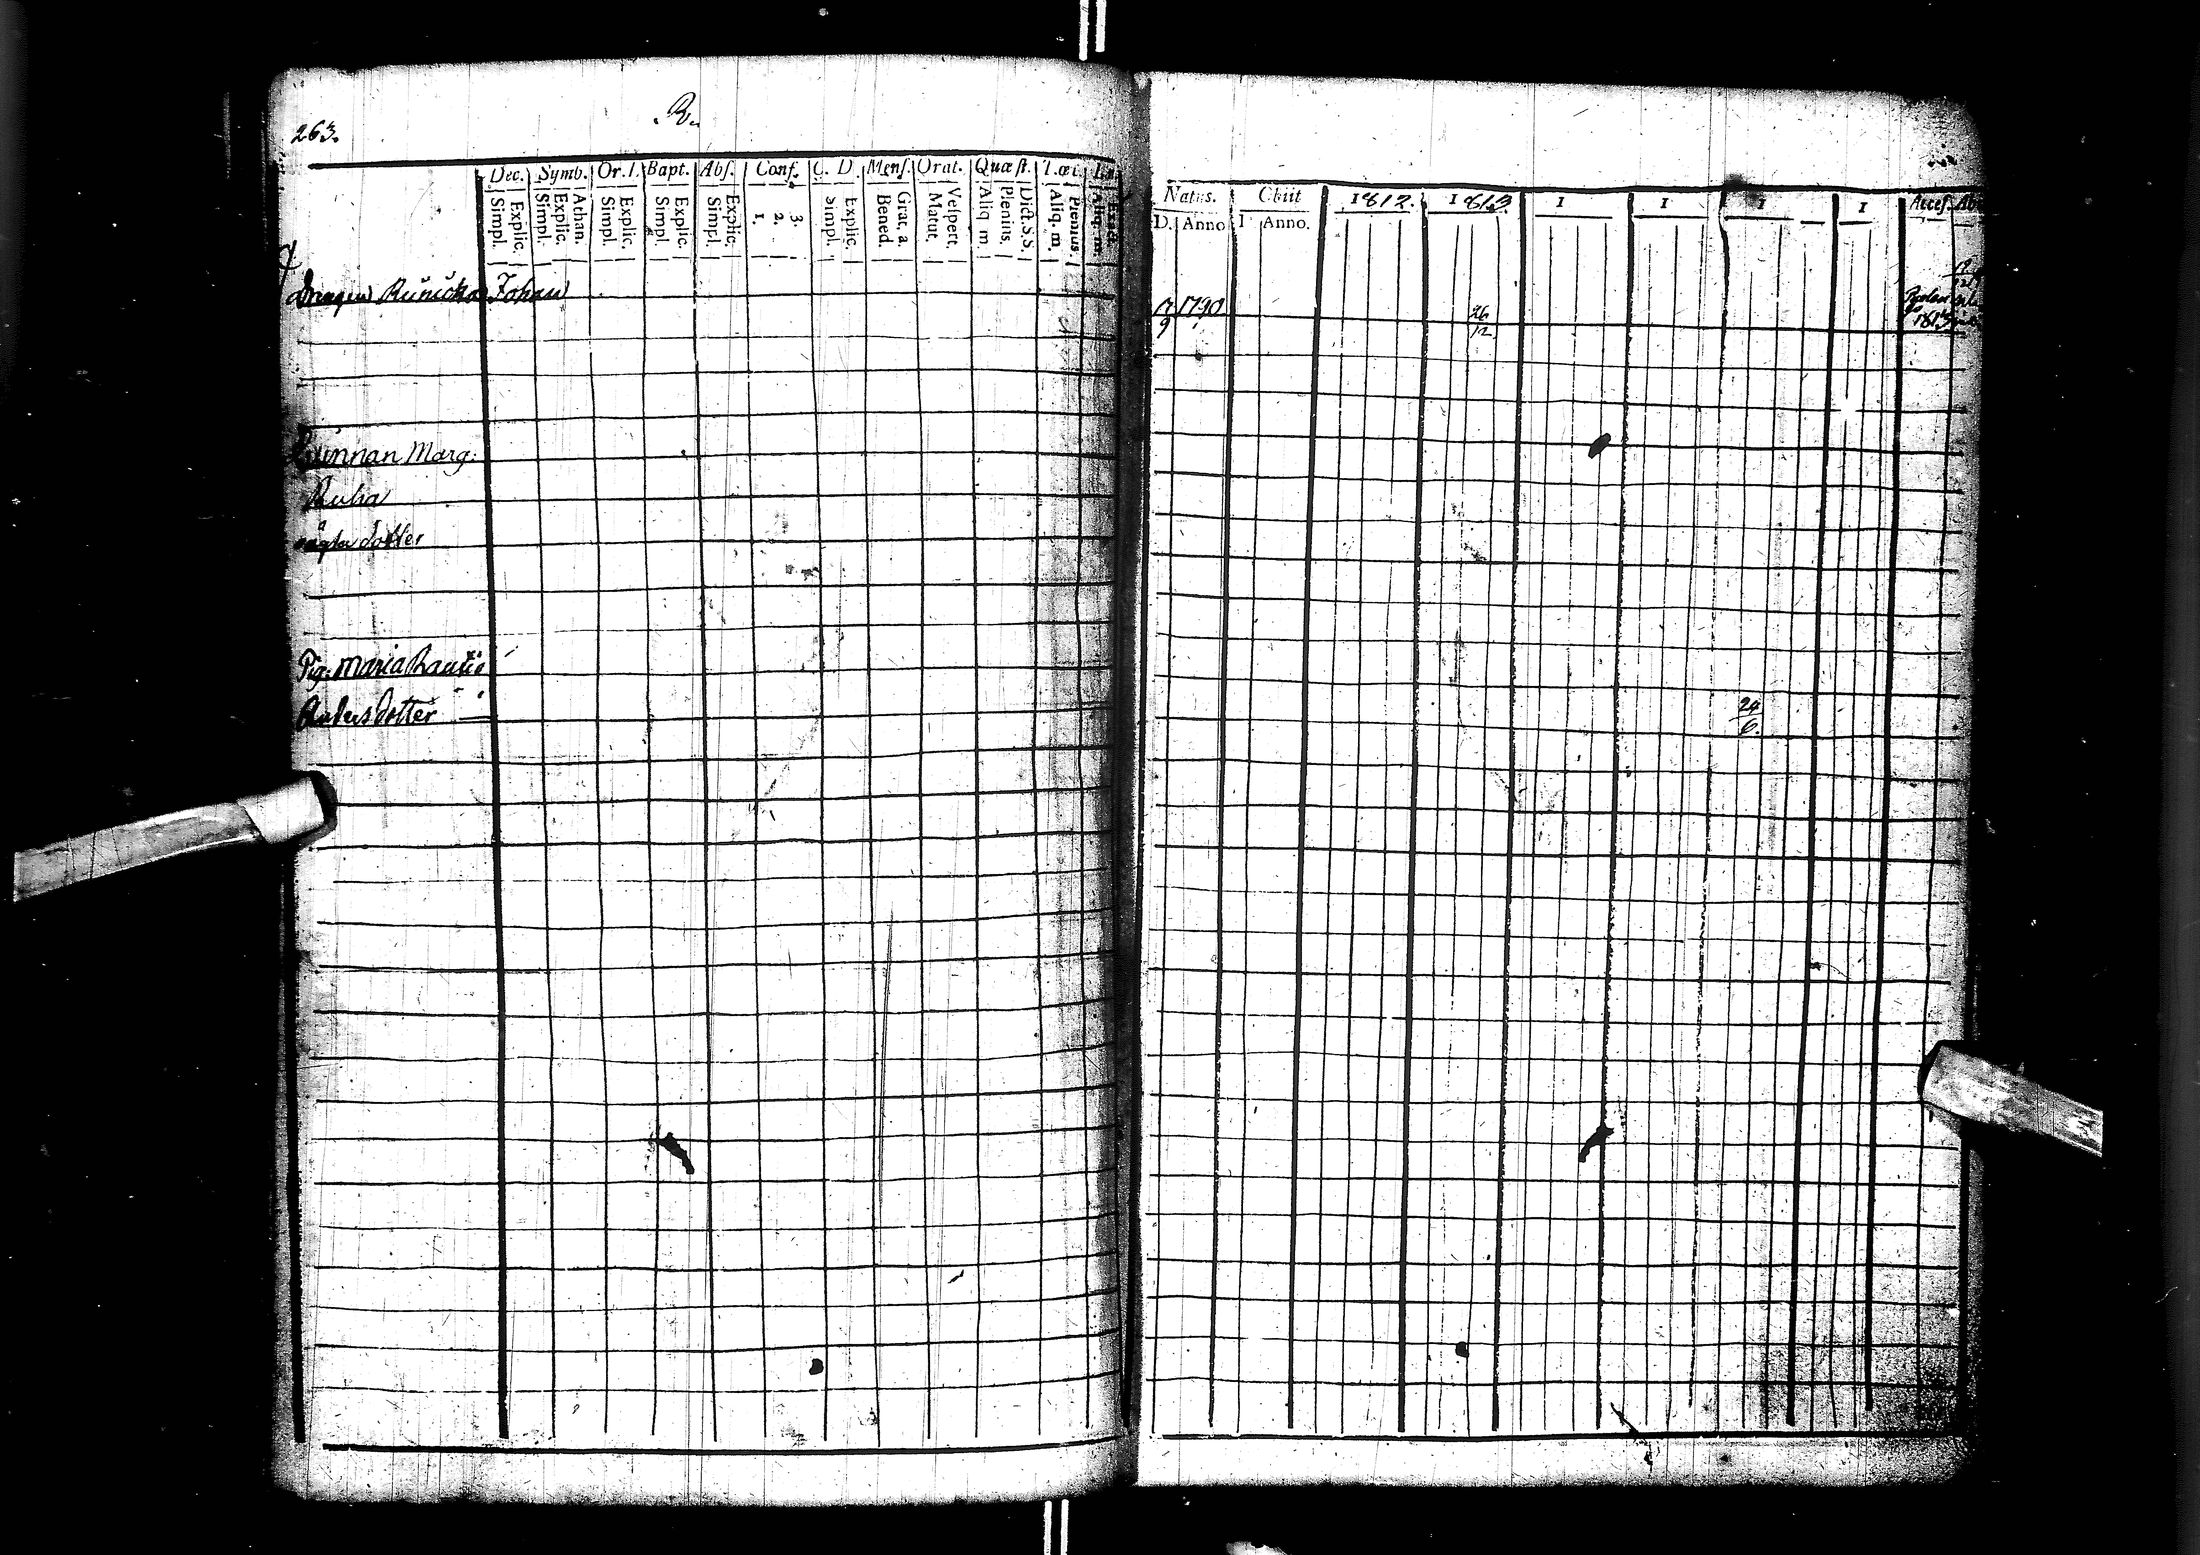 263.
R.
Dec. Symb. Or. D. Bapt. Abs. Conf. C. D. Mens. Orat. Quæst.
Simpl. Explic. Simpl. Explic. Athan. Simpl. Explic. Simpl. Explic. Simpl. Explic. 1. 2. 3. Simpl. Explic. Bened. Grat. a. Matut. Vespert. Aliq. m. Plenius. Dict. S. S. Aliq. m. Plenius. Aliq. m.
Natus. Obiit 1812. 1813 1 1 1 1 Acces.
D. Anno Anno.
Drengen Johan
17/9 1790 26/12
1813
Qvinnan Marg:
Ruha
dotter
Pig: Maria
Anders dotter
24/6.